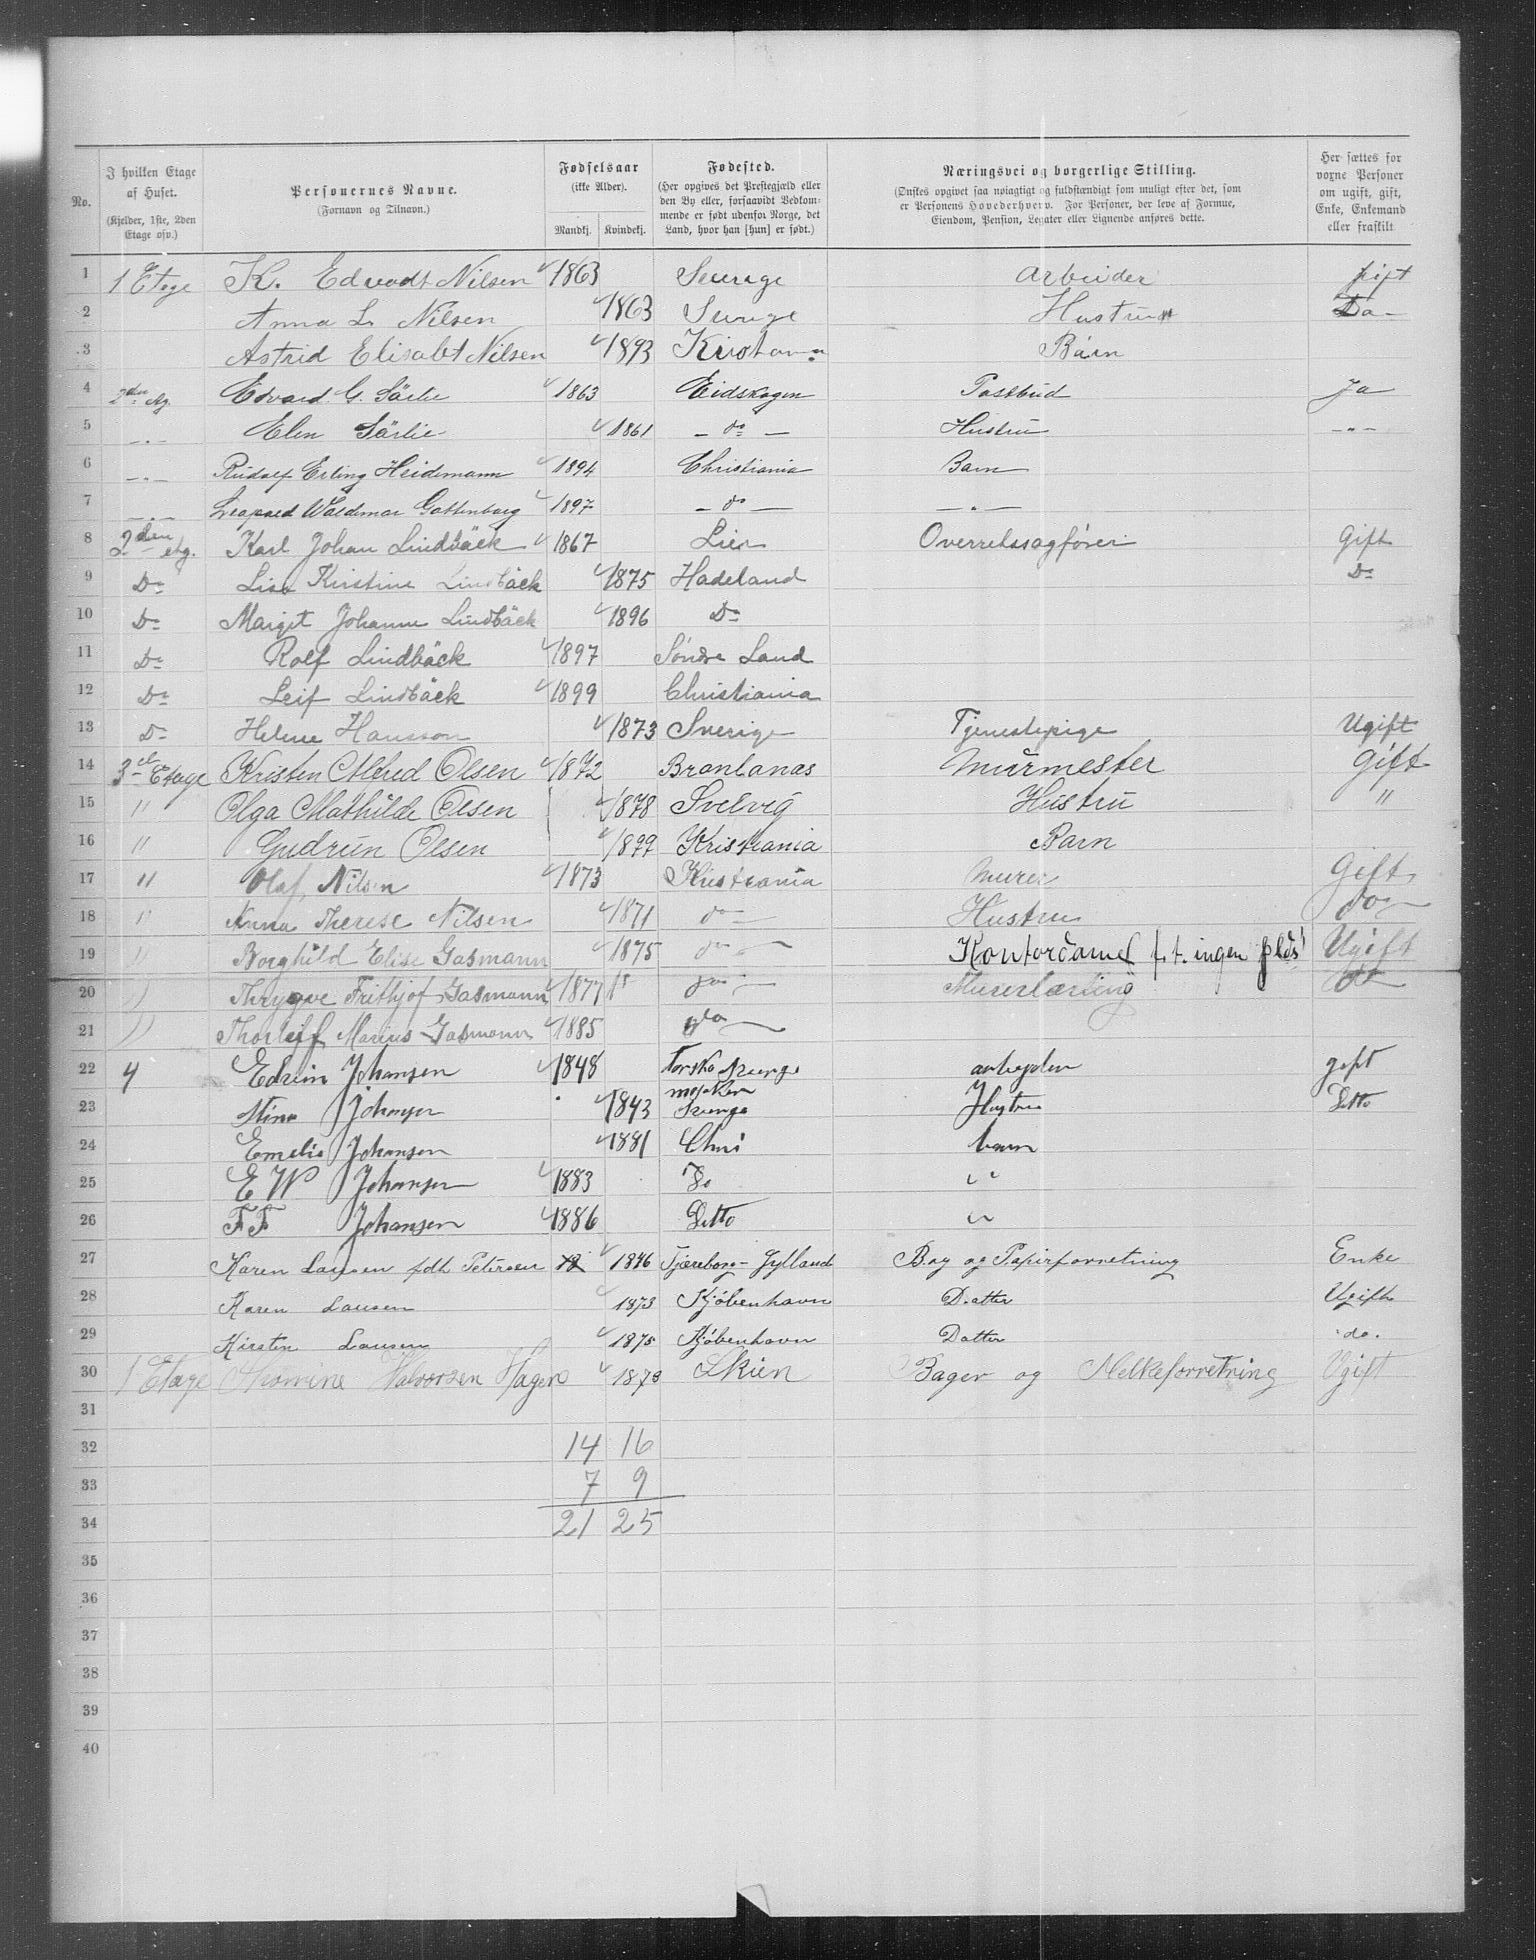 No.
I hvilken Etage af Huset.
(Kjelder, 1ste, 2den Etage osv.)
Personernes Navne.
(Fornavn og Tilnavn.)
Fødselsaar
(ikke Alder).
Mandkj. Kvindekj.
Fødested.
(Her opgives det Prestegjæld eller den By eller, forsaavidt Vedkommende er født udenfor Norge, det Land, hvor han [hun] er født.)
Næringsvei og borgerlige Stilling.
(Ønskes opgivet saa nøiagtigt og fuldstændigt som muligt efter det, som er Personens Hovederhverv. For Personer, der leve af Formue, Eiendom, Pension, Legater eller Lignende anføres dette.
Her sættes for voxne Personer om ugift, gift, Enke, Enkemand eller fraskilt
1 1 Etage K. Edvardt Nilsen 1863 Sverige Arbeider gift
2 Anna L. Nilsen 1863 Sverige Hustru Do
3 Astrid Elisabt Nilsen 1893 Kristania Barn
4 2den Etg. Edvard. G. Särlie 1863 Eidskogen Postbud Ja
5 -"- Elen Särlie 1861 - do - Hustru -"-
6 -"- Rudolf Erling Heidemann 1894 Christiania Barn
7 -"- Leopold Waldemar Gottenborg 1897 - do - -"-
8 2den etg. Karl Johan Lindbäck 1867 Lier Overretssagfører Gift
9 Do Lisa Kirstine Lindbäck 1875 Hadeland Do
10 Do Margit Johanne Lindbäck 1896 Do
11 Do Rolf Lindbäck 1897 Søndre Land
12 Do Leif Lindbäck 1899 Christiania
13 Do Helene Hansson 1873 Sverige Tjenestepige Ugift
14 3die Etage Kristen Alfred Olsen 1872 Branlanas Murmester Gift
15 " Olga Mathilde Olsen 1878 Svelvig Hustru "
16 " Gudrun Olsen 1899 Kristiania Barn
17 " Olaf Nilsen 1873 Kristiania Murer Gift
18 " Anna Therese Nilsen 1871 do Hustru do
19 " Borghild Elise Gasmann 1875 do Kontordame f. t. ingen plds! Ugift
20 " Thrygve Frithjof Gasmann 1877 do Murerlærling do
21 " Thorleif Marius Gasmann 1885 do
22 4 Edvin Johansen 1848 Torsko Sverge arbejder gift
23 Stina Johansen 1843 Sverige Hustru Ditto
24 Emelie Johansen 1881 Chri barn
25 E W Johansen 1883 Do "
26 F F Johansen 1886 Ditto "
27 Karen Lausen født Petersen 1846 Tjæreborg - Jylland Bog og Papirforretning Enke
28 Karen Lausen 1873 Kjöbenhavn Datter Ugift
29 Kirsten Lausen 1875 Kjöbenhavn Datter do.
30 1 Etage Thomine Halvorsen Hagen 1870 Skien Bager og Melkeforretning Ugift
31
32 14 16
33 7 9
34 21 25
35
36
37
38
39
40